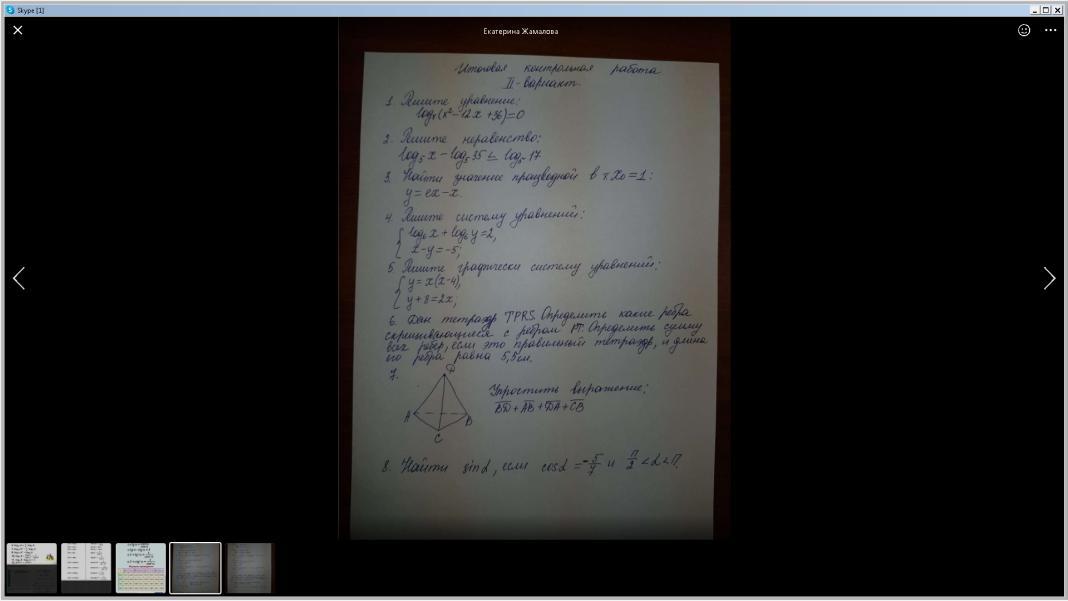 Skype [1]
Екатерина Жамалова
Итоговая контрольная работа
II - вариант.
1. Решите уравнение:
log₄(x²-12x+36)=0
2. Решите неравенство:
log₅ x - log₅ 35 ≤ log₅ 17
3. Найти значение производной в т. x₀=1:
y = ex - x.
4. Решите систему уравнений:
log₆ x + log₆ y = 2,
x - y = -5;
5. Решите графически систему уравнений:
y = x(x-4),
y + 8 = 2x;
6. Дан тетраэдр TPRS. Определить какие ребра
скрещивающиеся с ребром PT. Определить сумму
всех ребер, если это правильный тетраэдр, и длина
его ребра равна 5,5см.
7.
D
Упростить выражение:
BD + AB + DA + CB
A
B
C
8. Найти sinα, если cosα = -5/7 и π/2 < α < π.